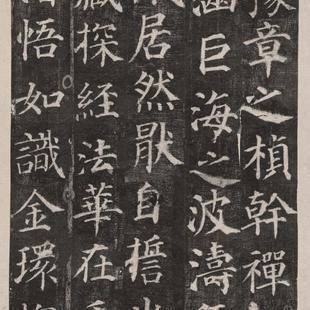 豫章之楨幹禪
涵巨海之波濤
居然厭自誓
藏探經法華在
悟如識金環